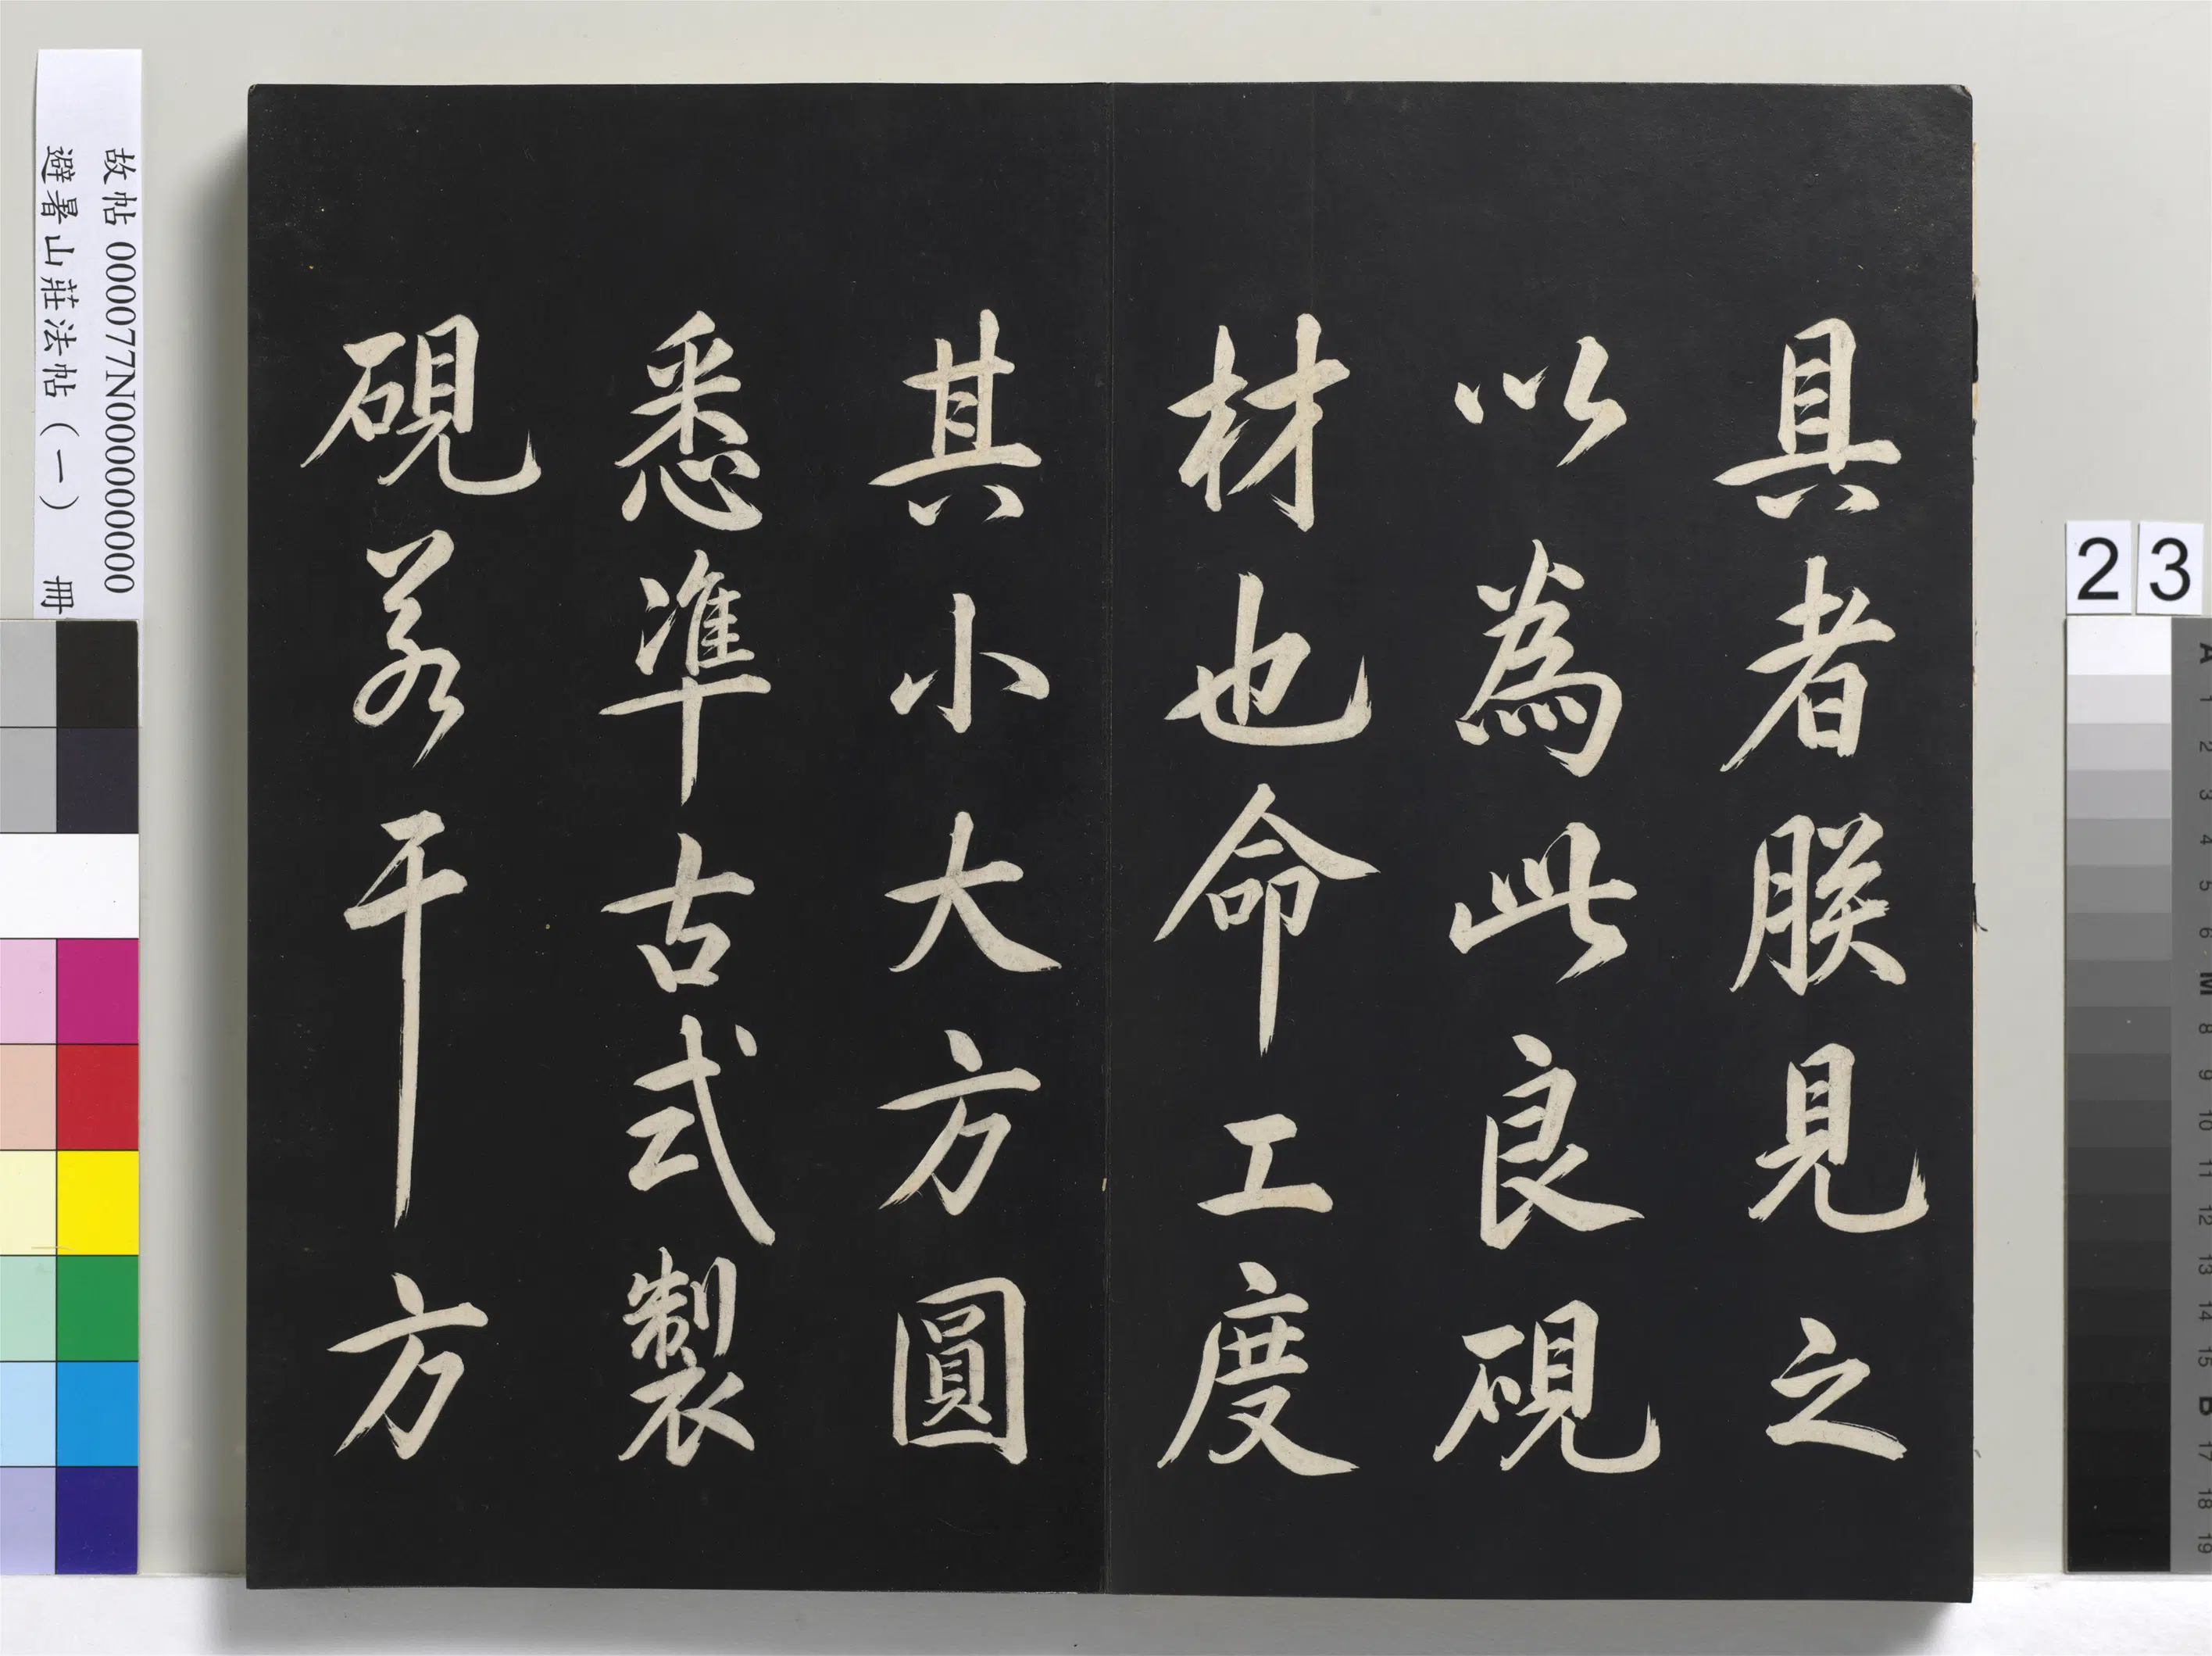 具者朕見之
以為此良硯
材也命工度
其小大方圓
悉準古式製
硯若干方
故帖 000077N000000000
避暑山莊法帖（一） 冊
23
A
1
2
3
4
5
6
M
8
9
10
11
12
13
14
15
B
17
18
19